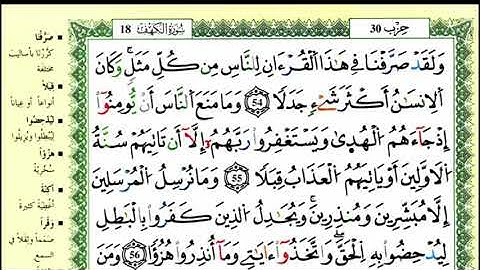 سُورَةُ الكَهْفِ 18
حِزْب 30
وَلَقَدْ صَرَّفْنَا فِے هَٰذَا اَ۬لْقُرْءَانِ لِلنَّاسِ مِن كُلِّ مَثَلٖۖ وَكَانَ
اَ۬لِانسَٰنُ أَكْثَرَ شَےْءٖ جَدَلاٗ 54 وَمَا مَنَعَ اَ۬لنَّاسَ أَنْ يُّومِنُوٓاْ
إِذْ جَآءَهُمُ اُ۬لْهُد۪يٰ وَيَسْتَغْفِرُواْ رَبَّهُمُۥٓ إِلَّآ أَن تَاتِيَهُمْ سُنَّةُ
اُ۬لَاوَّلِينَ أَوْ يَاتِيَهُمُ اُ۬لْعَذَابُ قِبَلاٗ 55 وَمَا نُرْسِلُ اُ۬لْمُرْسَلِينَ
إِلَّا مُبَشِّرِينَ وَمُنذِرِينَۖ وَيُجَٰدِلُ اُ۬لذِينَ كَفَرُواْ بِالْبَٰطِلِ
لِيُدْحِضُواْ بِهِ اِ۬لْحَقَّۖ وَاتَّخَذُوٓاْ ءَايَٰتِے وَمَآ أُنذِرُواْ هُزُؤاٗ 56 وَمَنَ
صَرَّفْنَا
كَرَّرْنَا بأساليبَ
مختلفة
قِبَلاً
أنواعاً أو عِياناً
لِيُدْحِضُوا
لِيُبْطِلُوا ويُزيلوا
هُزُؤاً
سُخْرِيَّة
أكِنَّةً
أغْطِيَةً كثيرة
وَقْراً
صَمَماً وثِقَلاً في
السمع